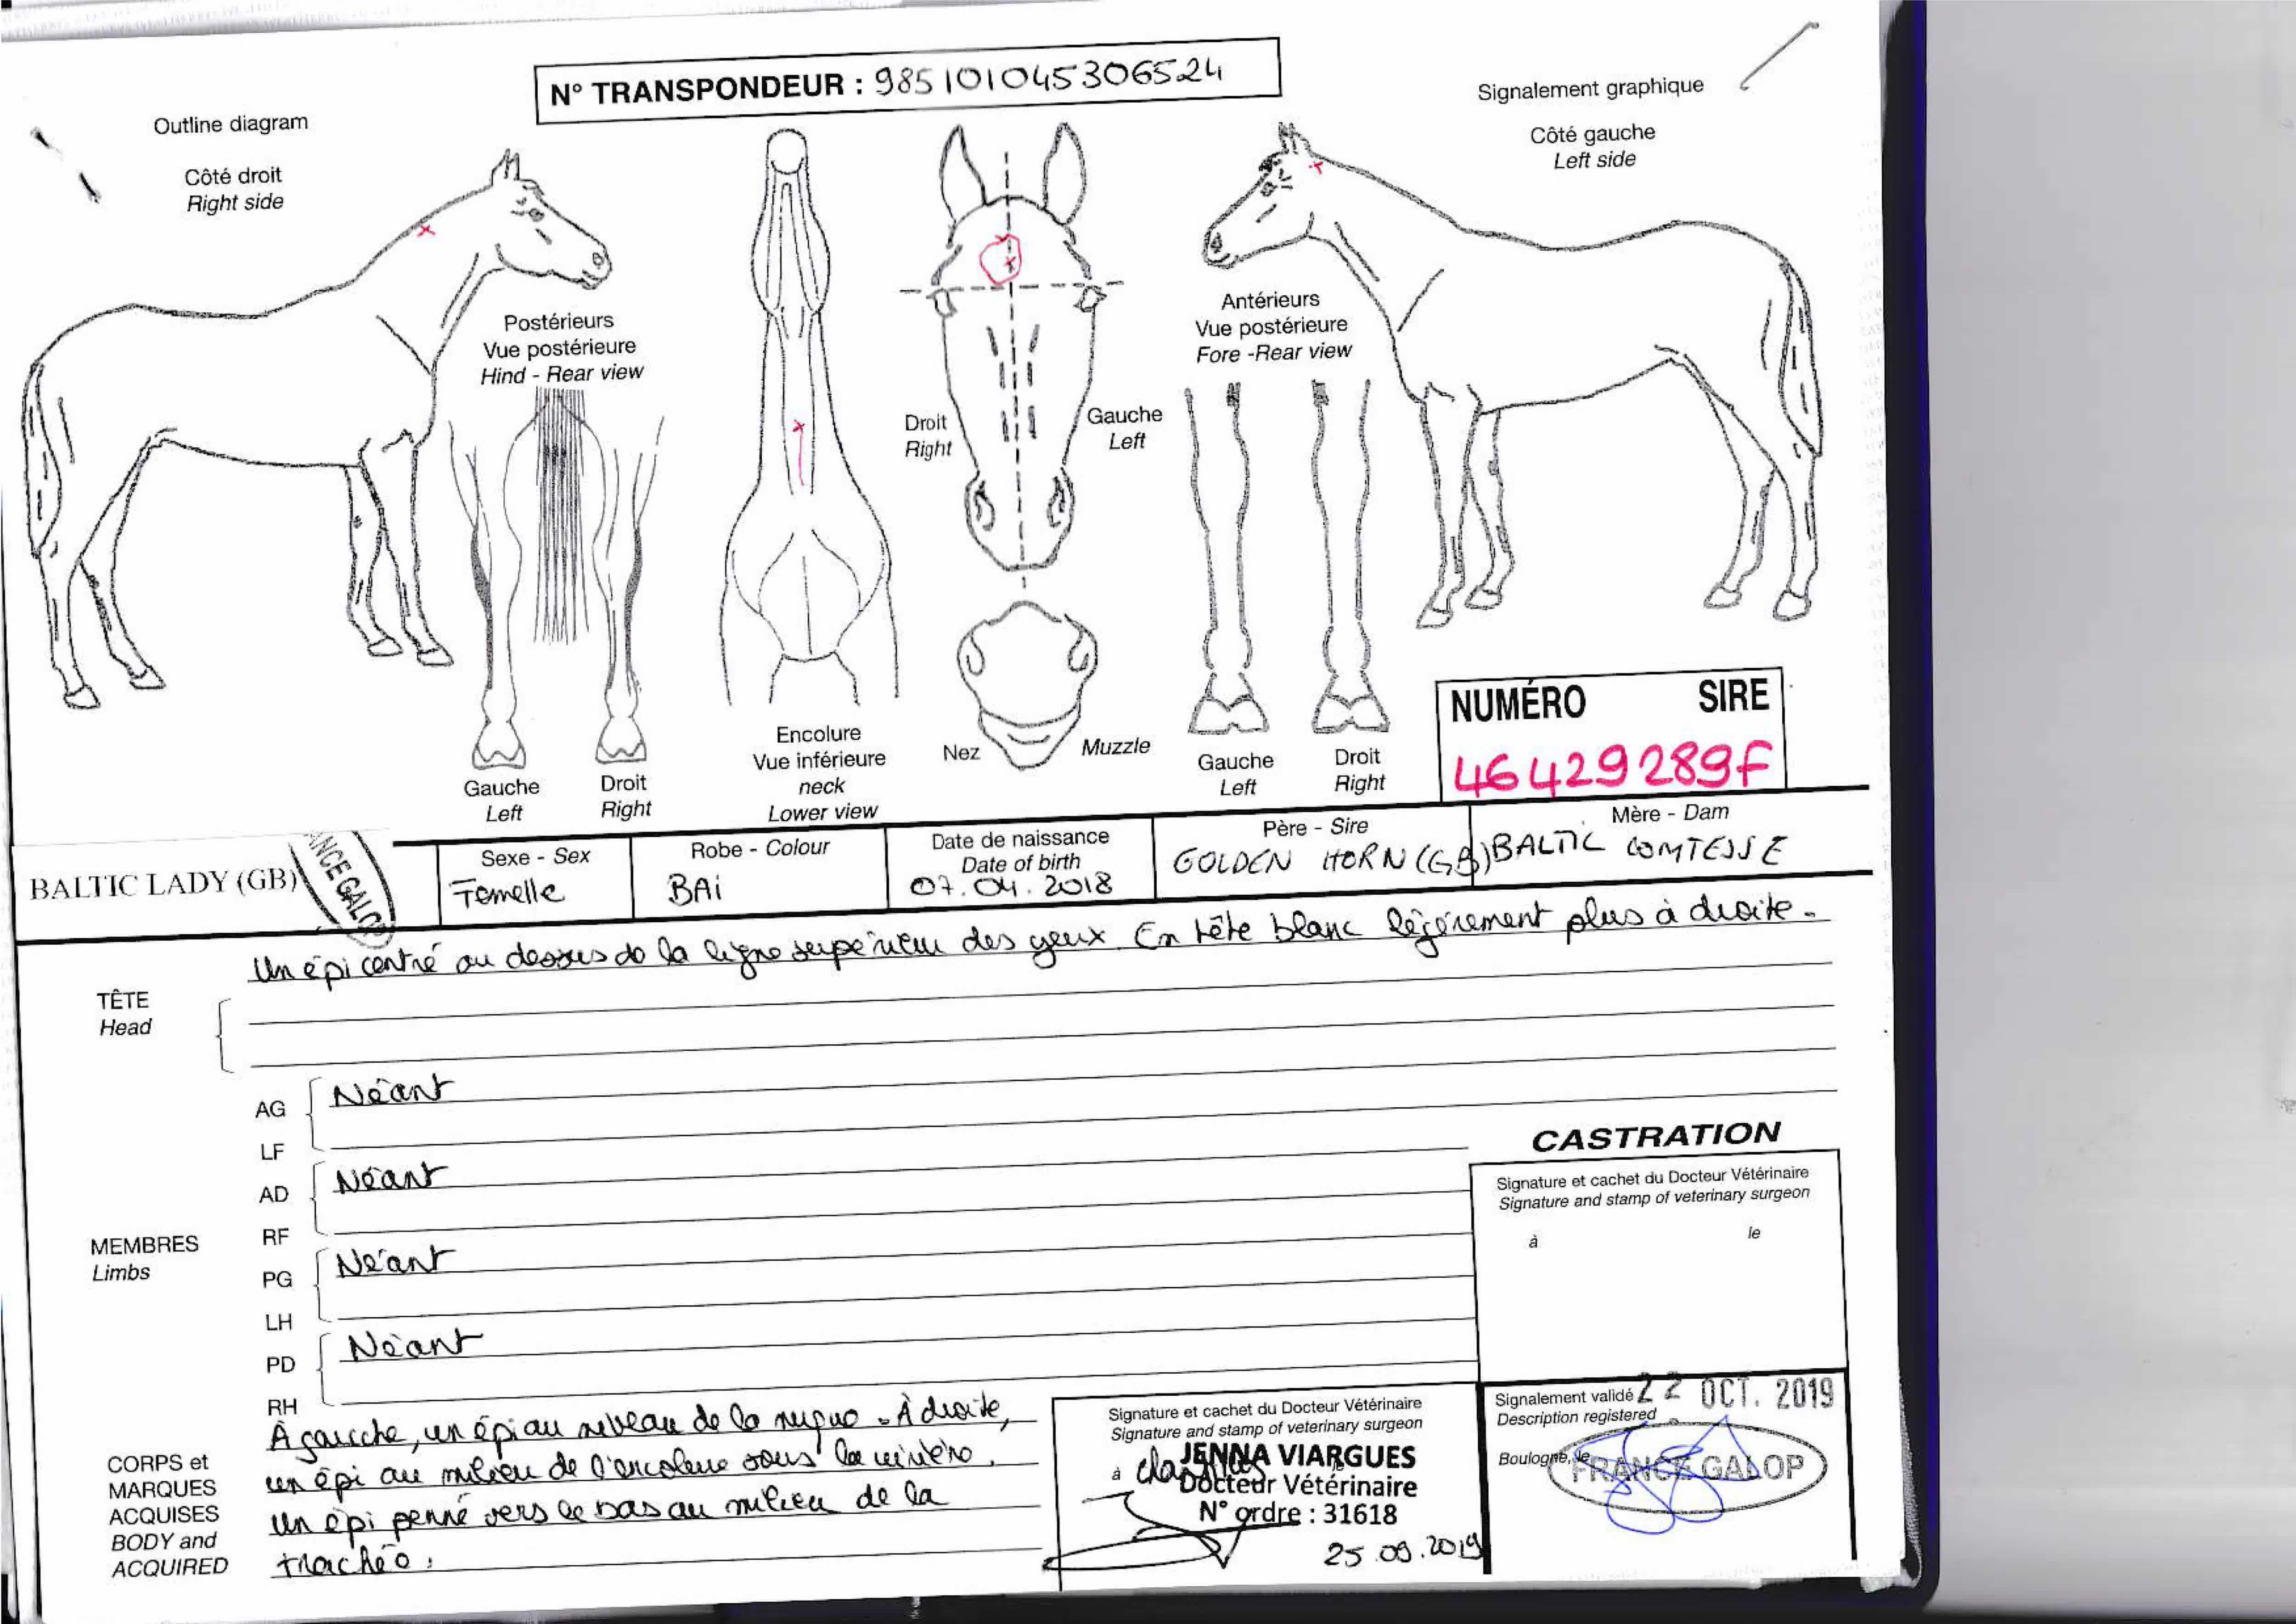 N° TRANSPONDEUR : 985101045306524
Outline diagram
Côté droit
Right side
Signalement graphique
Côté gauche
Left side
Postérieurs
Vue postérieure
Hind - Rear view
Antérieurs
Vue postérieure
Fore -Rear view
Droit
Right
Gauche
Left
Gauche
Left
Droit
Right
Encolure
Vue inférieure
neck
Lower view
Nez
Muzzle
Gauche
Left
Droit
Right
NUMÉRO SIRE
46429289F
BALTIC LADY (GB)
ANCE GALOP
Sexe - Sex
Femelle
Robe - Colour
BAi
Date de naissance
Date of birth
07.04.2018
Père - Sire
GOLDEN HORN (GB)
Mère - Dam
BALTIC COMTESSE
TÊTE
Head
Un épi centré au dessus de la ligne supérieur des yeux. En tête blanc légèrement plus à droite.
MEMBRES
Limbs
AG
LF
Néant
AD
RF
Néant
PG
LH
Néant
PD
RH
Néant
CORPS et
MARQUES
ACQUISES
BODY and
ACQUIRED
À gauche, un épi au niveau de la nuque. À droite,
un épi au milieu de l'encolure sous la crinière.
Un épi penné vers le bas au milieu de la
trachée.
CASTRATION
Signature et cachet du Docteur Vétérinaire
Signature and stamp of veterinary surgeon
à le
Signature et cachet du Docteur Vétérinaire
Signature and stamp of veterinary surgeon
à
JENNA VIARGUES
Docteur Vétérinaire
N° ordre : 31618
25.09.2019
Signalement validé 22 OCT. 2019
Description registered
Boulogne, le
FRANCE GALOP